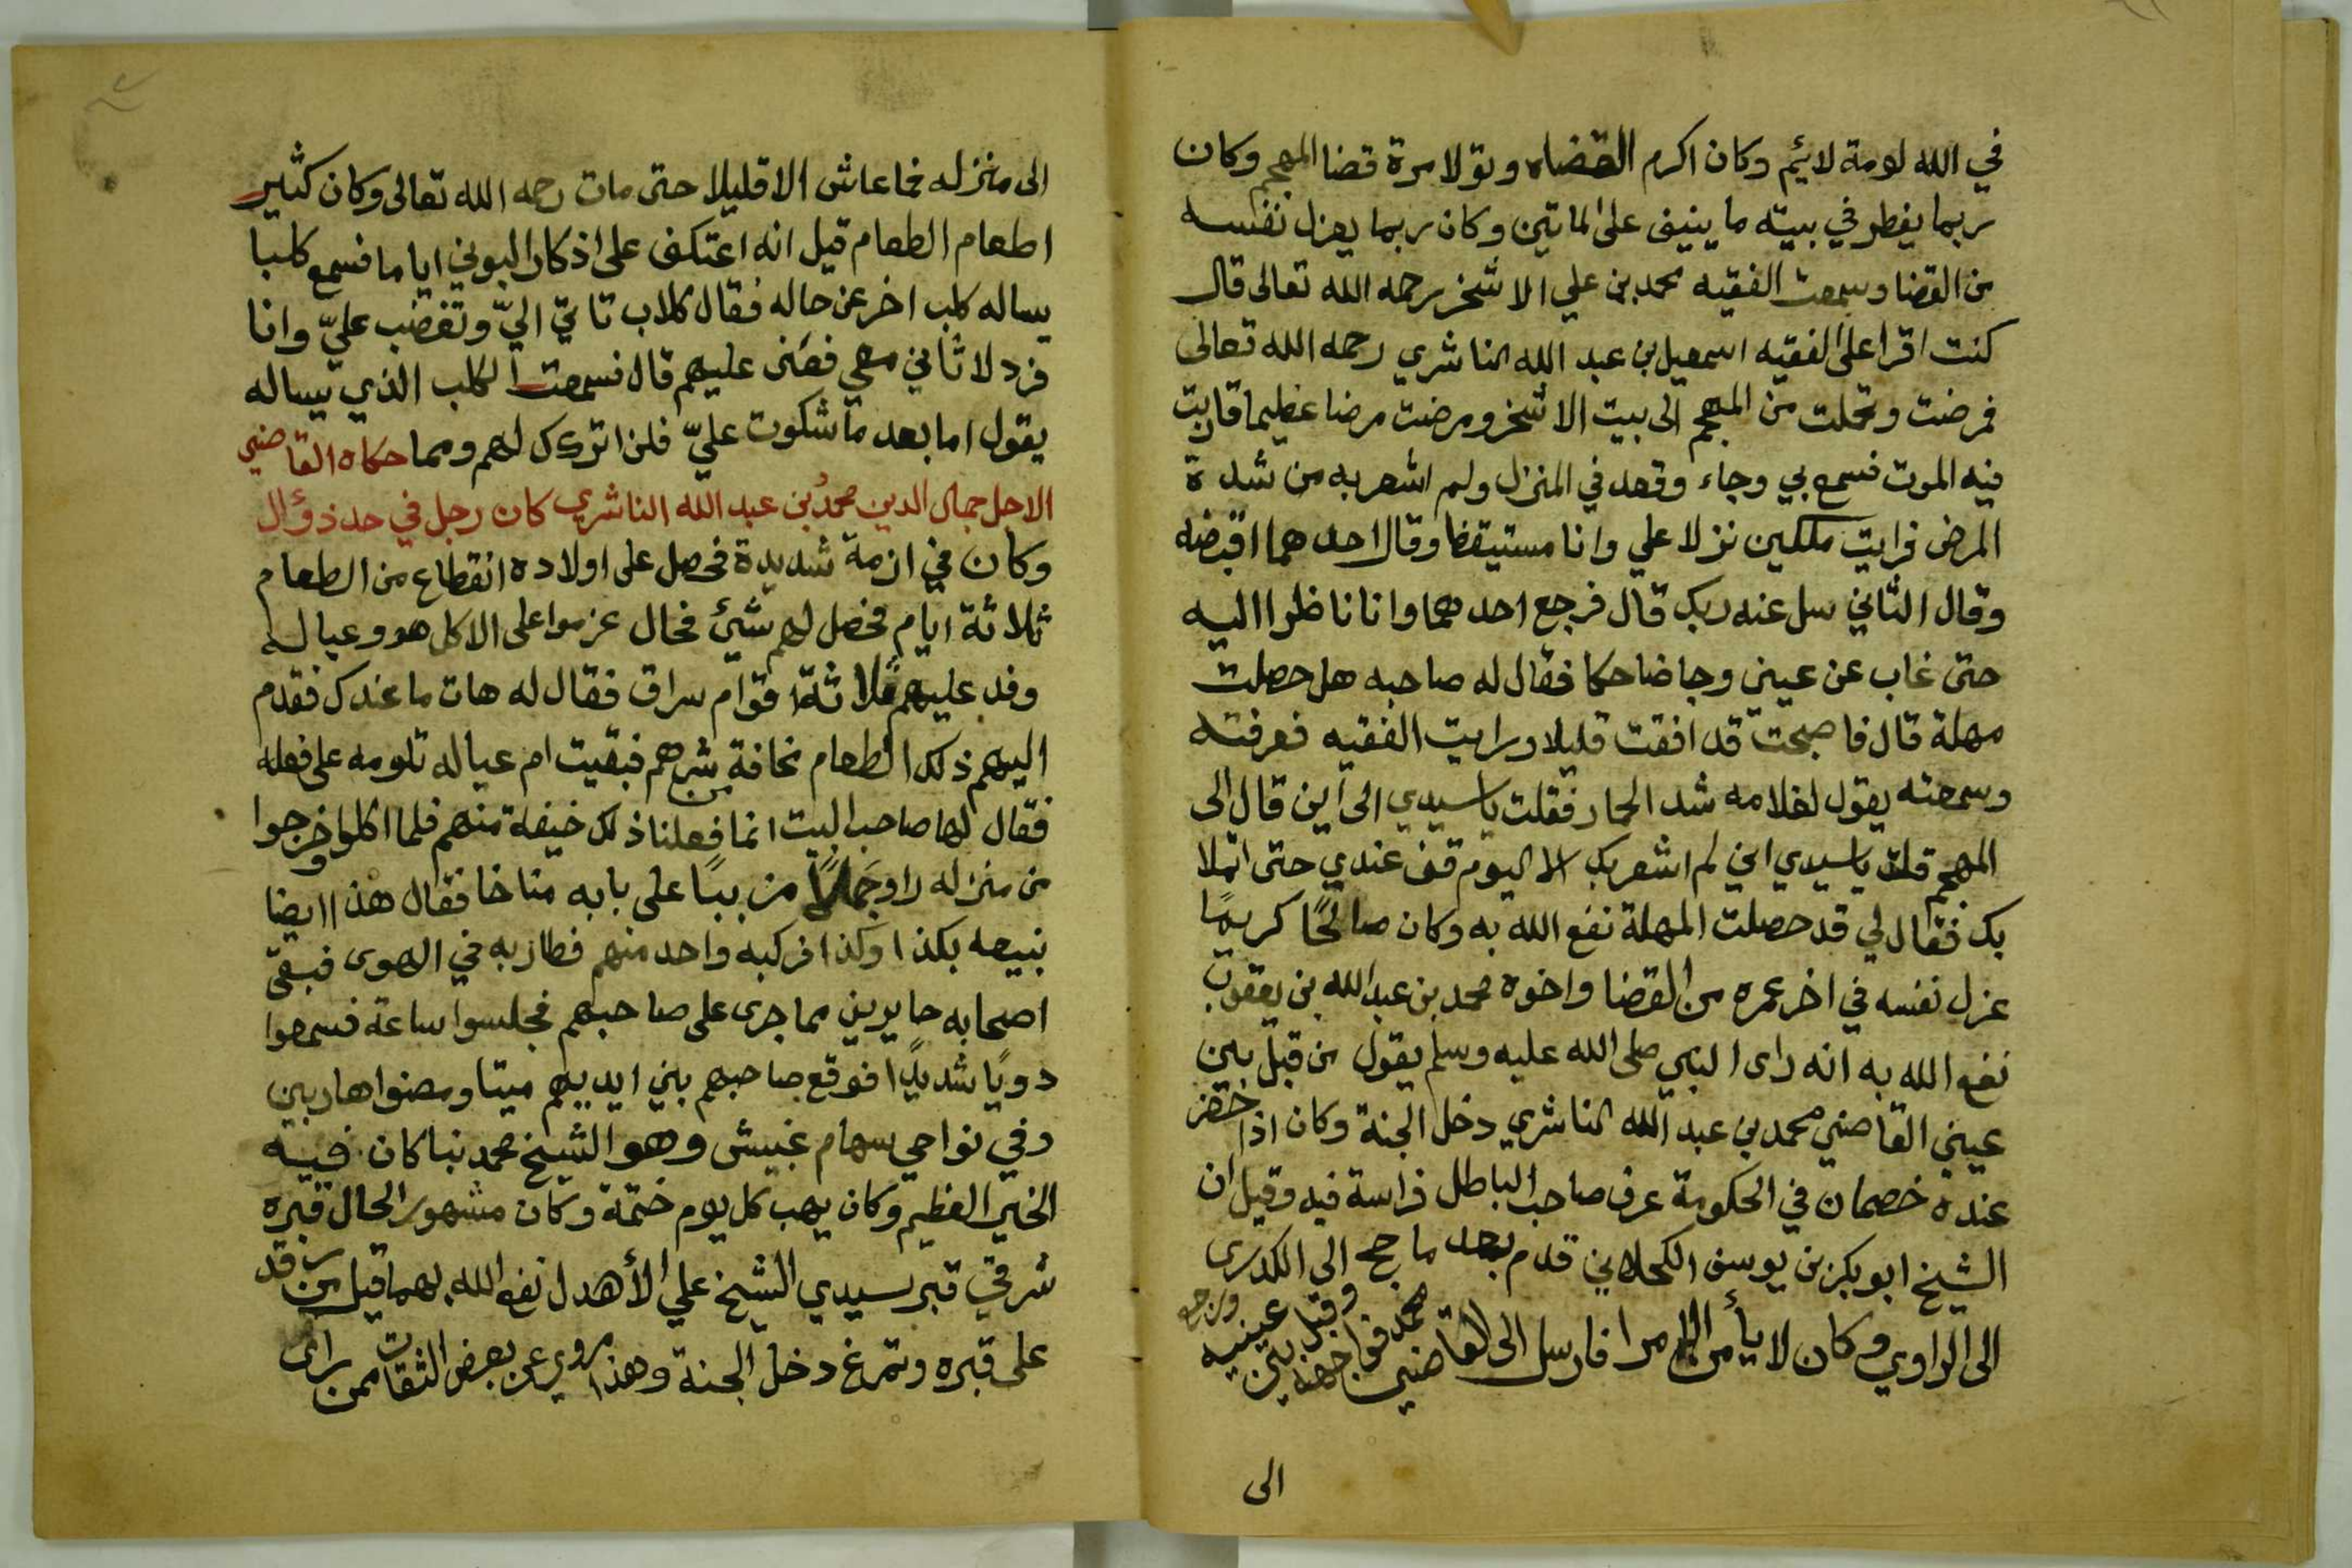 في الله لومة لائم وكان اكرم القضاه وتولا مرة قضا المهجم وكان
ربما يفطر في بيته ما ينيف على الماتين وكان ربما يعزل نفسه
من القضا وسمعت الفقيه محمد بن علي الاشخر رحمه الله تعالى قال
كنت اقرا على الفقيه اسمعيل بن عبد الله الناشري رحمه الله تعالى
فمرضت وتحملت من المهجم الى بيت الاشخر ومرضت مرضا عظيما قاربت
فيه الموت فسمع بي وجاء وقعد في المنزل ولم اشعر به من شدة
المرض فرايت ملكين نزلا علي وانا مستيقظا وقال احدهما اقبضه
وقال الثاني سل عنه ربك قال فرجع احدهما وانا ناظرا اليه
حتى غاب عن عيني وجا ضاحكا فقال له صاحبه هل حصلت
مهلة قال فاصبحت قد افقت قليلا ورايت الفقيه فعرفته
وسمعته يقول لغلامه شد الحمار فقلت ياسيدي الى اين قال الى
المهجم قلت ياسيدي اني لم اشعر بك الا اليوم قف عندي حتى اتملا
بك فقال لي قد حصلت المهلة نفع الله به وكان صالحًا كريمًا
عزل نفسه في اخر عمره من القضا واخوه محمد بن عبد الله بن يعقوب
نفع الله به انه راى النبي صلى الله عليه وسلم يقول من قبل بين
عيني القاضي محمد بن عبد الله الناشري دخل الجنة وكان اذا حضر
عنده خصمان في الحكومة عرف صاحب الباطل فراسة فيه وقيل ان
الشيخ ابو بكر بن يوسف الكحلاني قدم بعد ما حج الى الكدرى
الى الراوي وكان لا يأمن الامرا فارسل الى القاضي محمد فواجهه وقبل بين عينيه ورجع
الى
الى منزله فما عاش الا قليلا حتى مات رحمه الله تعالى وكان كثير
اطعام الطعام قيل انه اعتكف على اذكار البوني اياما فسمع كلبا
يساله كلب اخر عن حاله فقال كلاب تاتي اليّ وتغضب عليّ وانا
فرد لا ثاني معي فعنى عليهم قال فسمعت الكلب الذي يساله
يقول اما بعد ما شكوت عليّ فلن اتركك لهم ومما حكاه القاضي
الاجل جمال الدين محمد بن عبد الله الناشري كان رجل في حد ذؤال
وكان في ازمة شديدة فحصل على اولاده انقطاع من الطعام
ثلاثة ايام فحصل لهم شيئ فحال عزموا على الاكل هو وعياله
وفد عليهم ثلاثة اقوام سراق فقال له هات ما عندك فقدم
اليهم ذلك الطعام مخافة من شرهم فبقيت ام عياله تلومه على فعله
فقال لها صاحب البيت انما فعلنا ذلك خيفة منهم فلما اكلوا وخرجوا
من منزله راو جملاً مزببًا على بابه مناخا فقال هذا ايضا
نبيعه بكذا وكذا فركبه واحد منهم فطار به في الهوى فبقي
اصحابه حايرين مما جرى على صاحبهم فجلسوا ساعة فسمعوا
دويًا شديدًا فوقع صاحبهم بين ايديهم ميتا ومضوا هاربين
وفي نواحي سهام غبيش وهو الشيخ محمد نبا كان فيه
الخير العظيم وكان يهب كل يوم ختمة وكان مشهور الحال قبره
شرقي قبر سيدي الشيخ علي الأهدل نفع الله بهما قيل من قد
على قبره وتمرغ دخل الجنة وهذا مروي عن بعض الثقات ممن راى